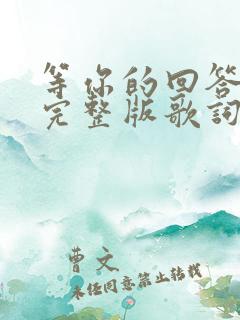 等你的回答
完整版歌词
曹文
未经同意禁止转载